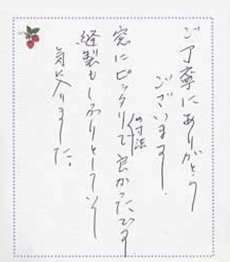 ご丁寧にありがとう
ございます!
窓にピッタリの寸法で良かったです
縫製もしっかりとしていて
気に入りました。